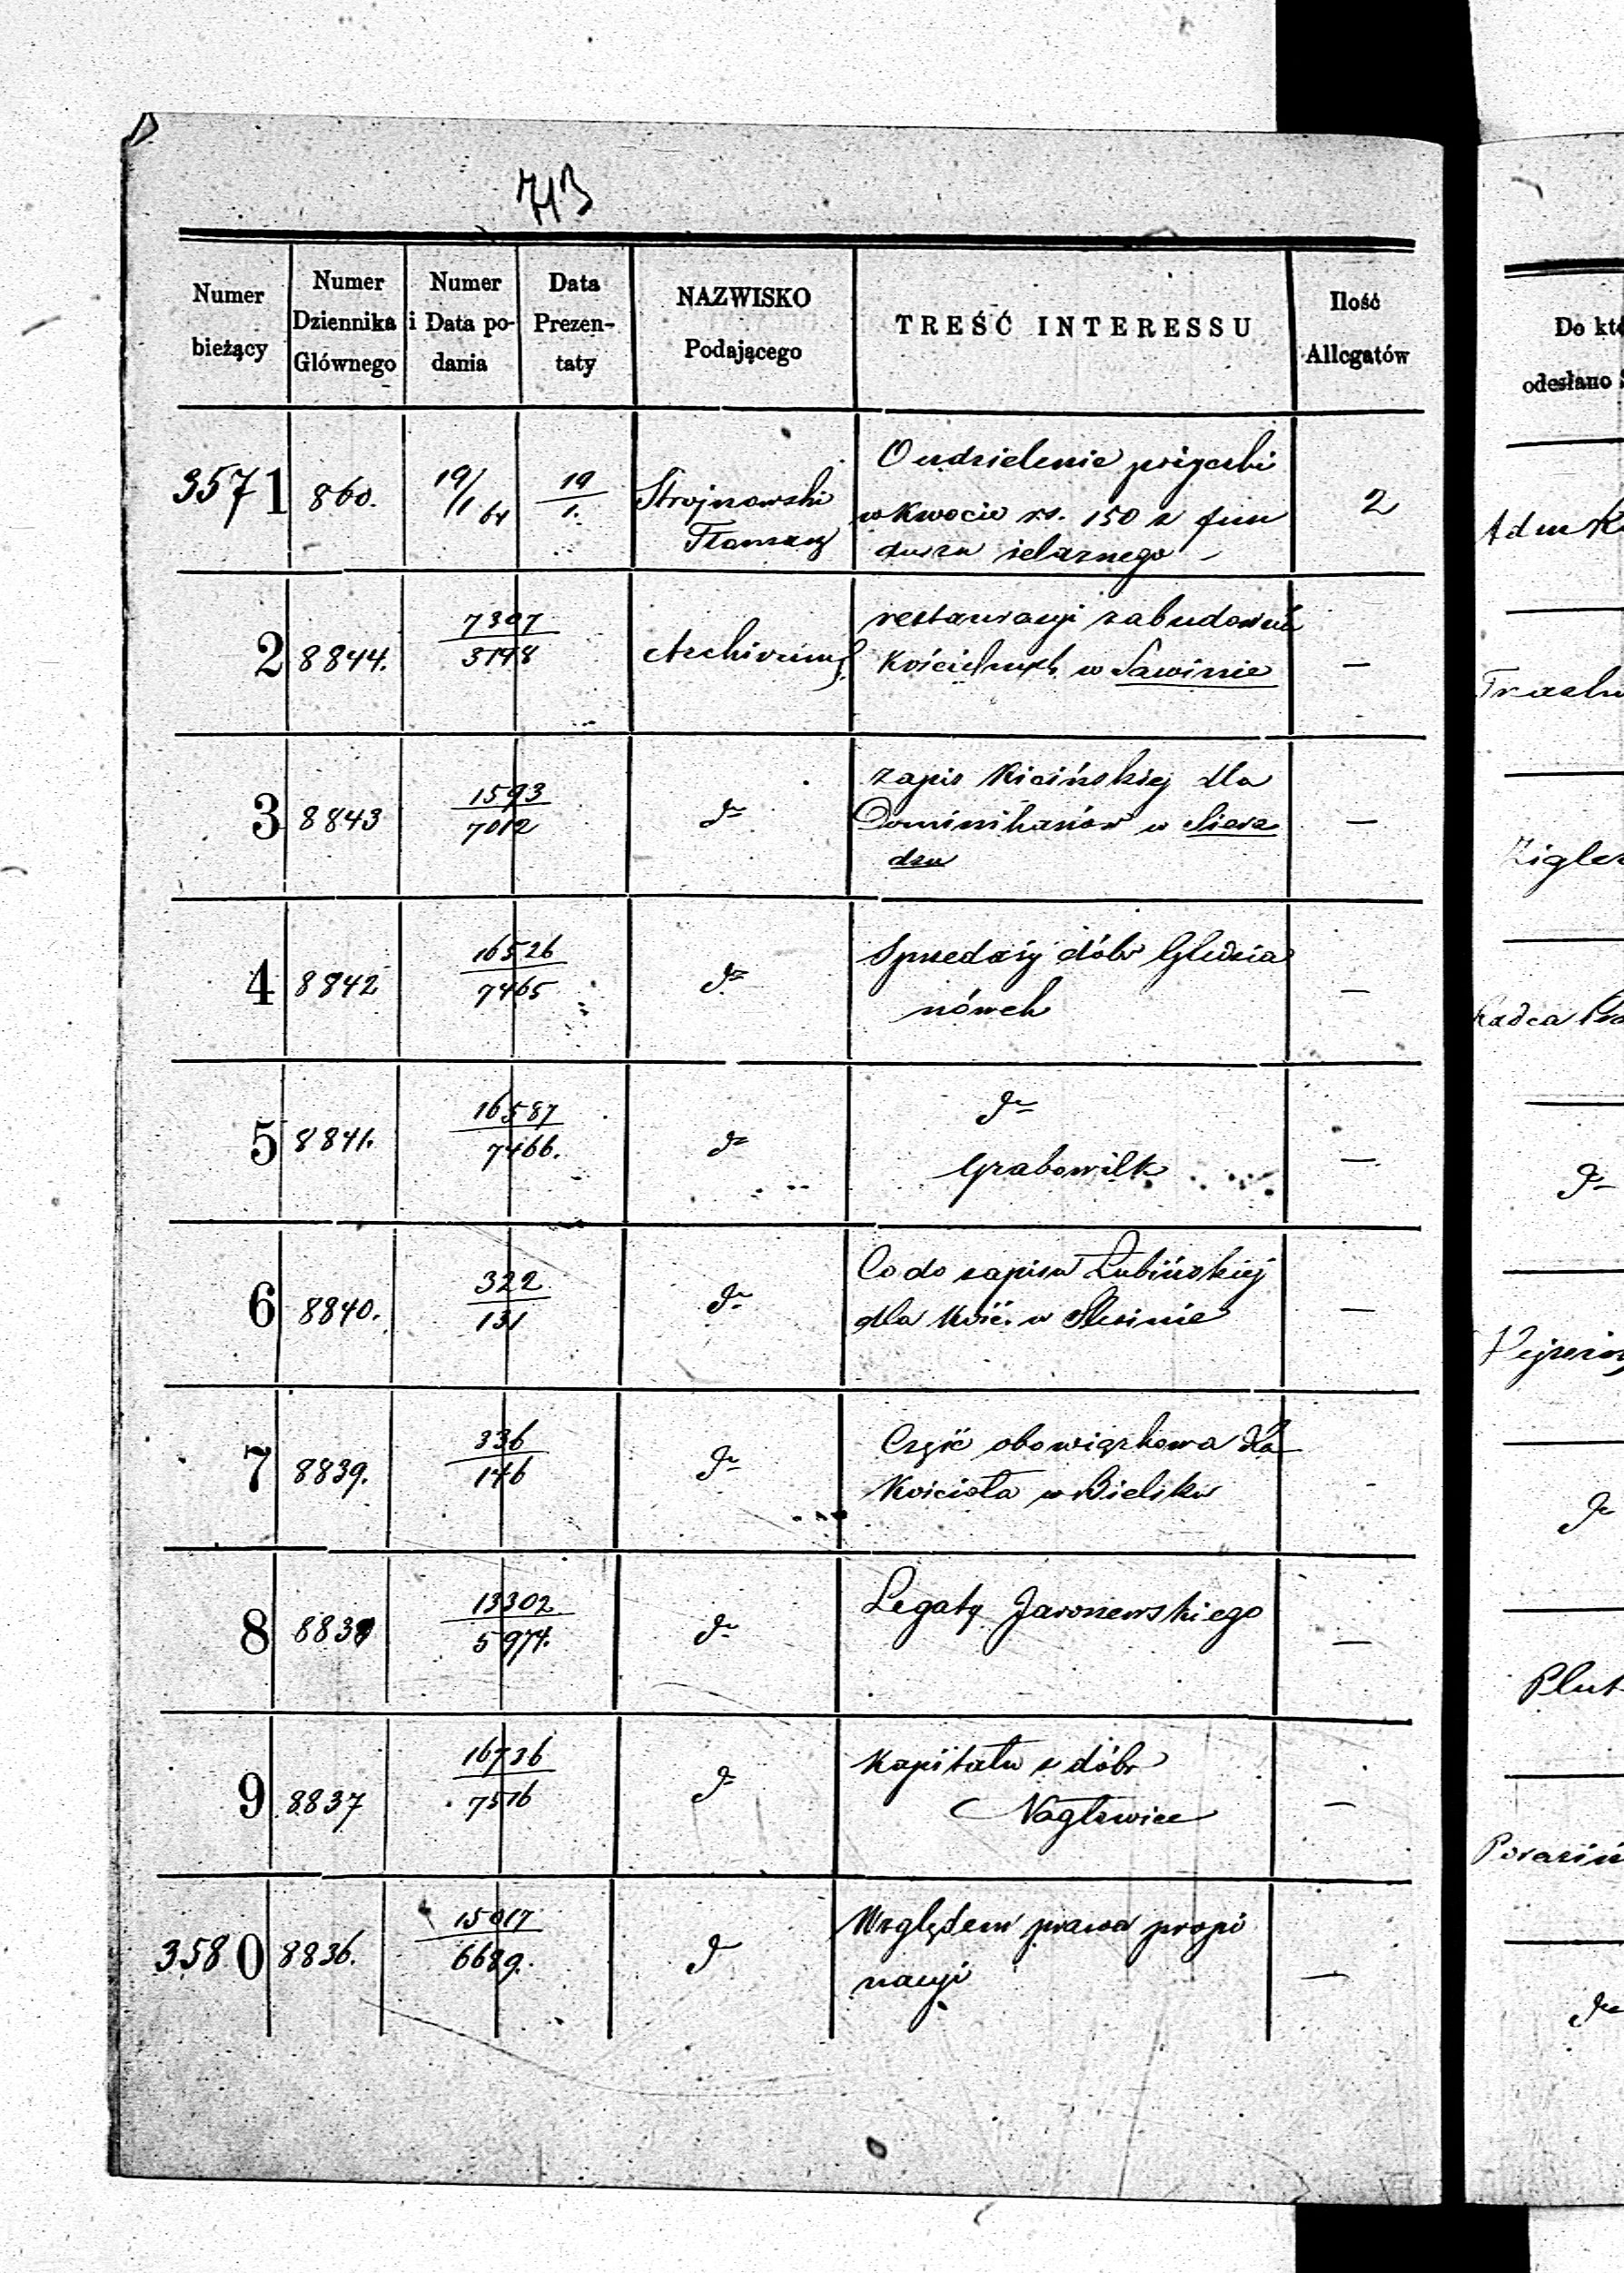 713
Numer bieżący | Numer Dziennika Głównego | Numer i Data podania | Data Prezentaty | NAZWISKO Podającego | TREŚĆ INTERESSU | Ilość Allegatów
Do kt
odesłano
3571 860. 19/1 64 19/1. Strojnowski O udzielenie pożyczki 2
w kwocie rs. 150 z fun
duszu żelaznego
Adm
2 8844. 7307/3148 restauracyi zabudowań
Kościelnych w Sawinie —
3 8843 1593/7012 dº zapis Kicińskiej dla —
Dominikanów w Siera
dzu
Zigler
4 8842 16526/7465 dº Sprzedaży dóbr —
nówek
Radca
5 8841. 16587/7466. dº dº —
Grabowilk
dº
6 8840. 322/131 dº Co do zapisu Łubińskiej —
dla Kość. w Ślesinie
7 8839. 336/146 dº Część obowiązkowa dla -
Kościoła w Bielsku
dº
8 8838 13302/5974. dº Legaty Jaroszewskiego —
Plut
9 8837 16736/7516 dº Kapitału z dóbr —
Nagłowice
3580 8836. 15017/6689. dº Względem prawa propi —
nacyi
dº